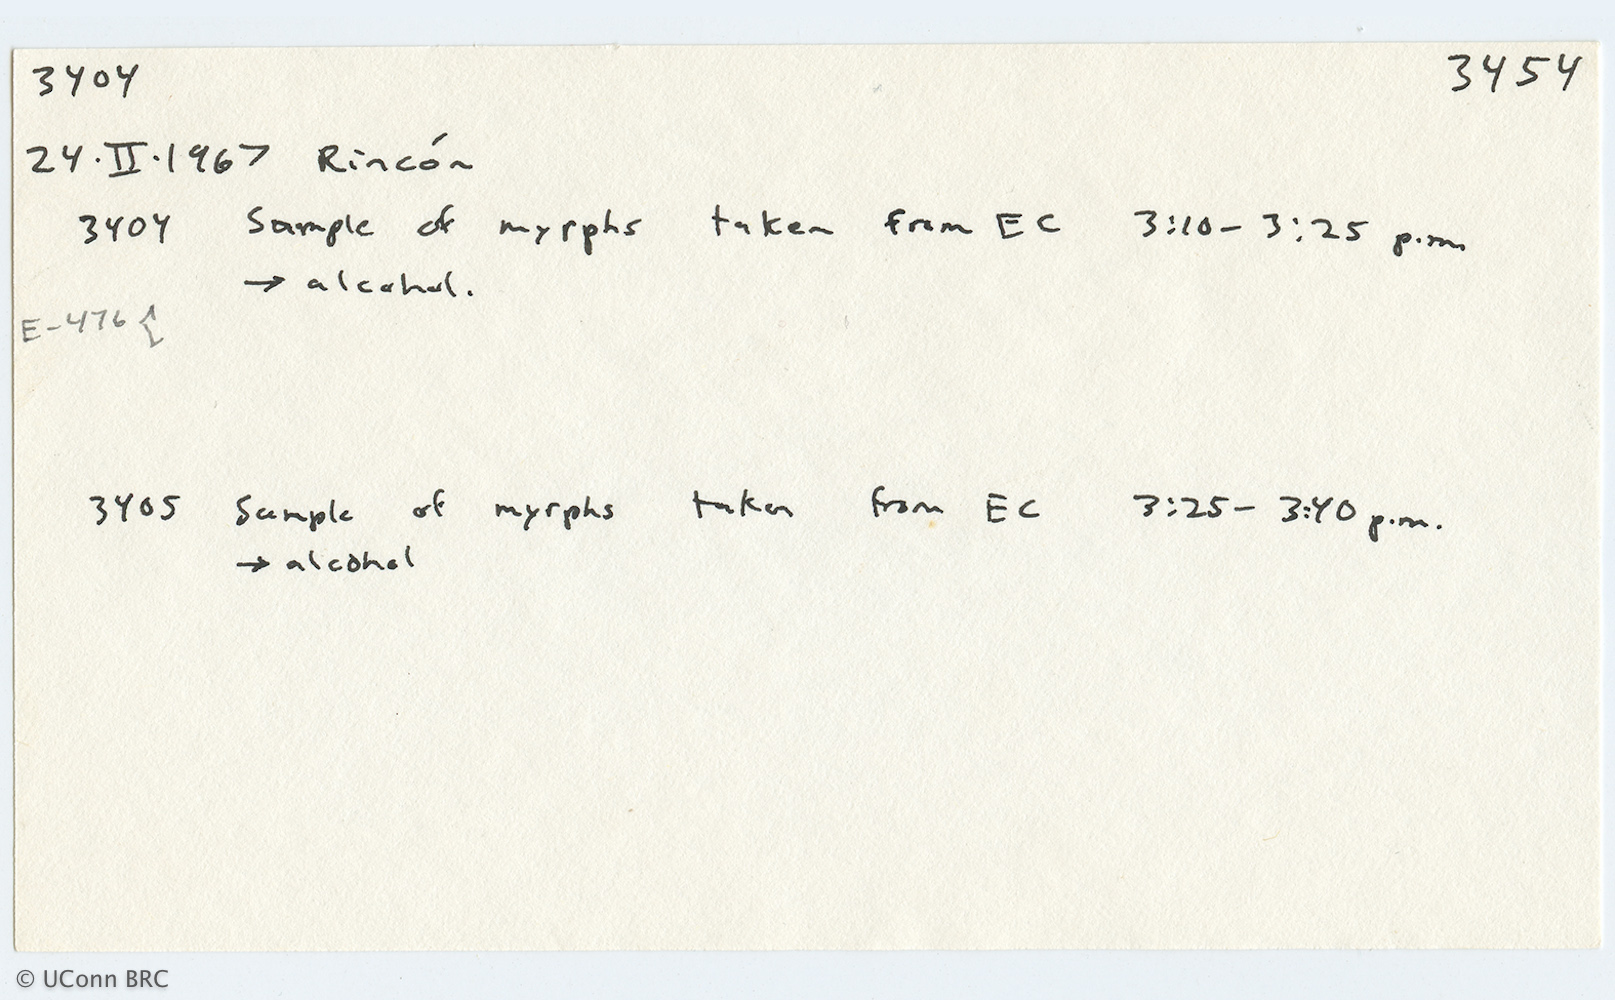 3404 3454
24·II·1967 Rincón
3404 Sample of myrphs taken from EC 3:10-3:25 p.m.
→ alcohol.
E-476 {
3405 Sample of myrphs taken from EC 3:25-3:40 p.m.
→ alcohol
© UConn BRC